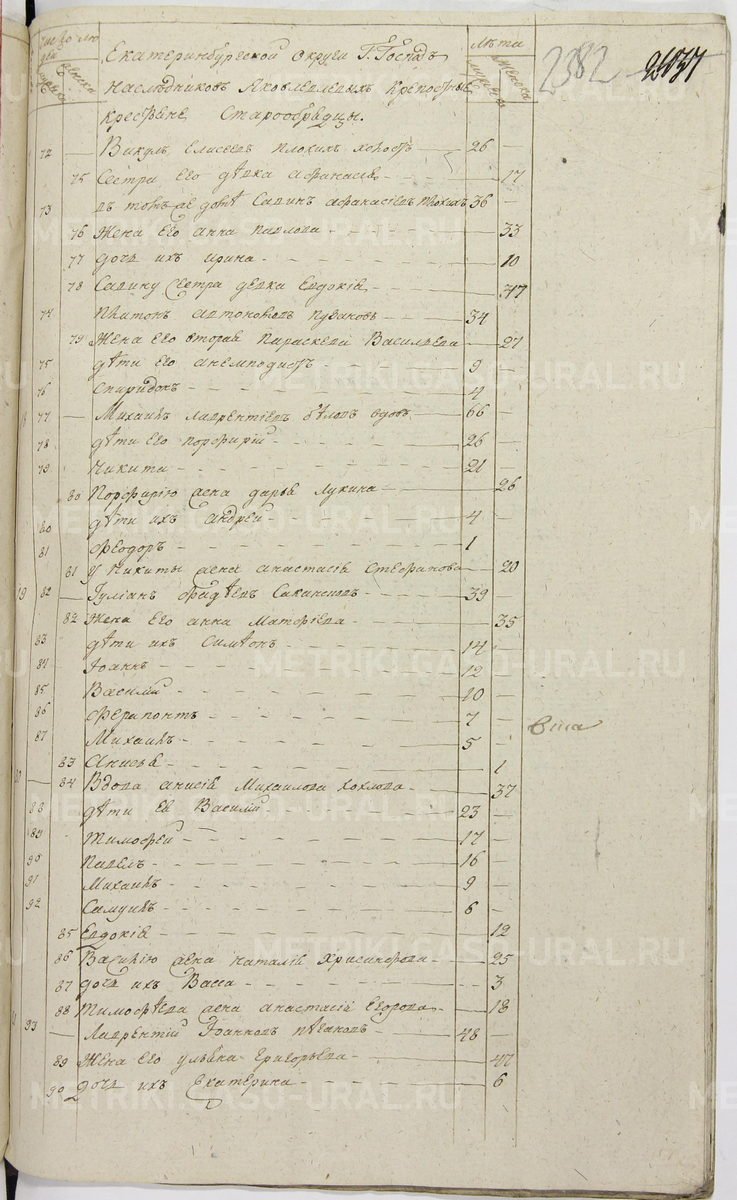 число людей мужеска женска
Екатеринбургской округи Г. Господъ лѣта 2382 2037
наслѣдниковъ Яковлевыхъ крепостные мужеска женска
крестьяне Старообрядцы.
72 — Викулъ Елисеевъ Плохихъ холостъ 26
75 Сестра его дѣвка Афанасія 17
73 въ томъ же домѣ Савинъ Афанасіевъ Плохихъ 36
76 Жена его Анна Павлова 33
77 дочь ихъ Ирина 10
78 Савину сестра девка Евдокія 37
74 Платонъ Автономовъ 34
79 Жена его вторая Параскева Васильева 27
75 дѣти его Анемподистъ 9
76 Спиридонъ 4
77 — Михаилъ Лаврентіевъ Бѣловъ вдовъ 66 —
78 дѣти его Порфирій 26 —
79 Никита 21 —
80 Порфирію жена Дарья Лукина 26
80 дѣти ихъ Андрей 4 —
81 Феодоръ 1
81 У Никиты жена Анастасія Стефанова 20
19 82 — Іуліанъ 39
82 Жена его Анна Матфіева 35
83 дѣти ихъ Симеонъ 14
84 Іоаннъ 12
85 Василий 10
86 Ферапонтъ 7 —
87 Михаилъ 5 —
83 Анисья 1
84 Вдова Анисія Михаилова Хохлова 37
88 дѣти ея Василий 23 —
89 Тимофей 17 —
90 Павелъ 16 —
91 Михаилъ 9 —
92 Самуилъ 6 —
85 Евдокія 12
86 Василію жена Наталія Хрисанфова 25
87 дочь ихъ Васса 3
88 Тимофѣева жена Анастасія Егорова 18
93 — Лаврентий Іоанновъ 48
89 Жена его Ульяна Григорьева 47
90 дочь ихъ Екатерина 6
METRIKI.GASO-URAL.RU